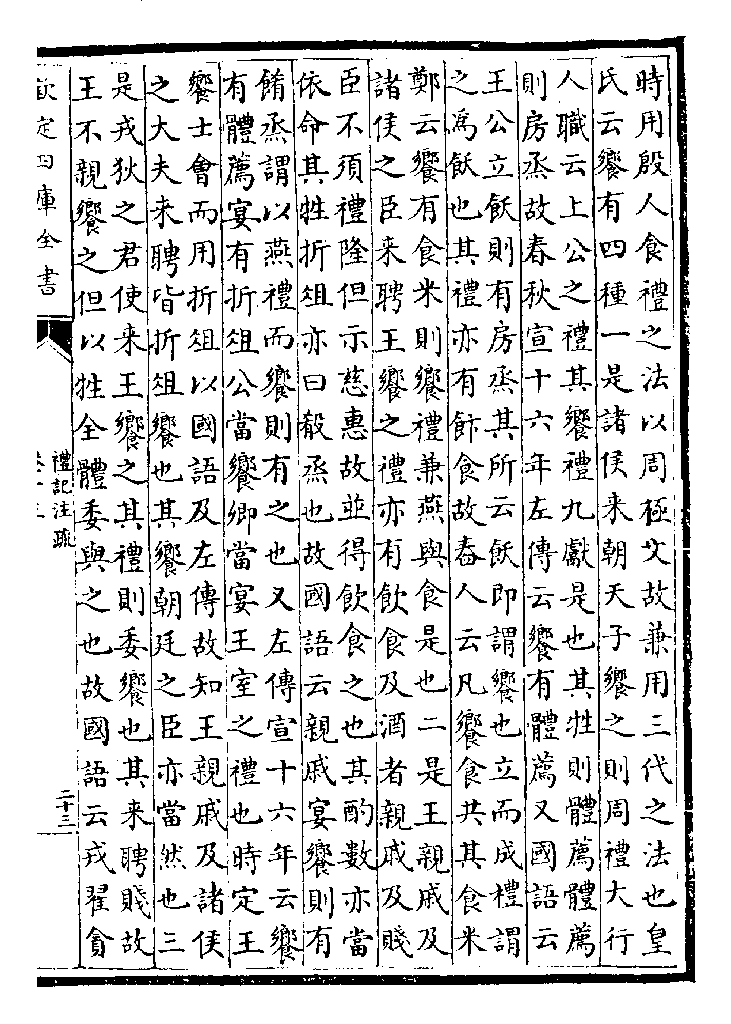 時用殷人食禮之法以周極文故兼用三代之法也皇
氏云饗有四種一是諸侯来朝天子饗之則周禮大行
人職云上公之禮其饗禮九獻是也其牲則體薦體薦
則房烝故春秋宣十六年左傳云饗有體薦又國語云
王公立飫則有房烝其所云飫即謂饗也立而成禮謂
之為飫也其禮亦有飰食故舂人云凡饗食共其食米
鄭云饗有食米則饗禮兼燕與食是也二是王親戚及
諸侯之臣来聘王饗之禮亦有飲食及酒者親戚及賤
臣不須禮隆但示慈惠故並得飲食之也其酌數亦當
依命其牲折俎亦曰殽烝也故國語云親戚宴饗則有
餚烝謂以燕禮而饗則有之也又左傳宣十六年云饗
有體薦宴有折俎公當饗卿當宴王室之禮也時定王
饗士會而用折俎以國語及左傳故知王親戚及諸侯
之大夫来聘皆折俎饗也其饗朝廷之臣亦當然也三
是戎狄之君使来王饗之其禮則委饗也其来聘賤故
王不親饗之但以牲全體委與之也故國語云戎翟貪
欽定四庫全書
禮記注疏
二十三